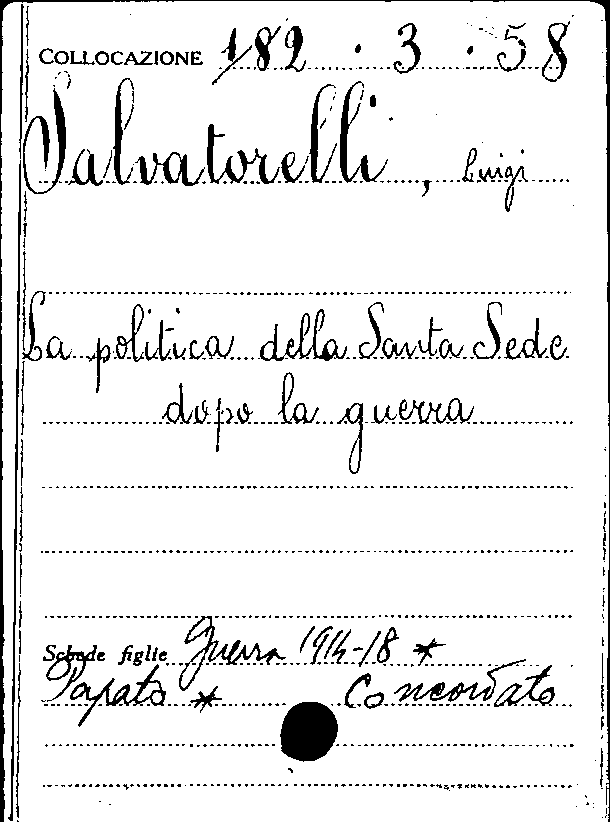 COLLOCAZIONE 182 . 3 . 58
Salvatorelli, Luigi
La politica della Santa Sede
dopo la guerra
Schede figlie Guerra 1914-18 *
Papato * Concordato